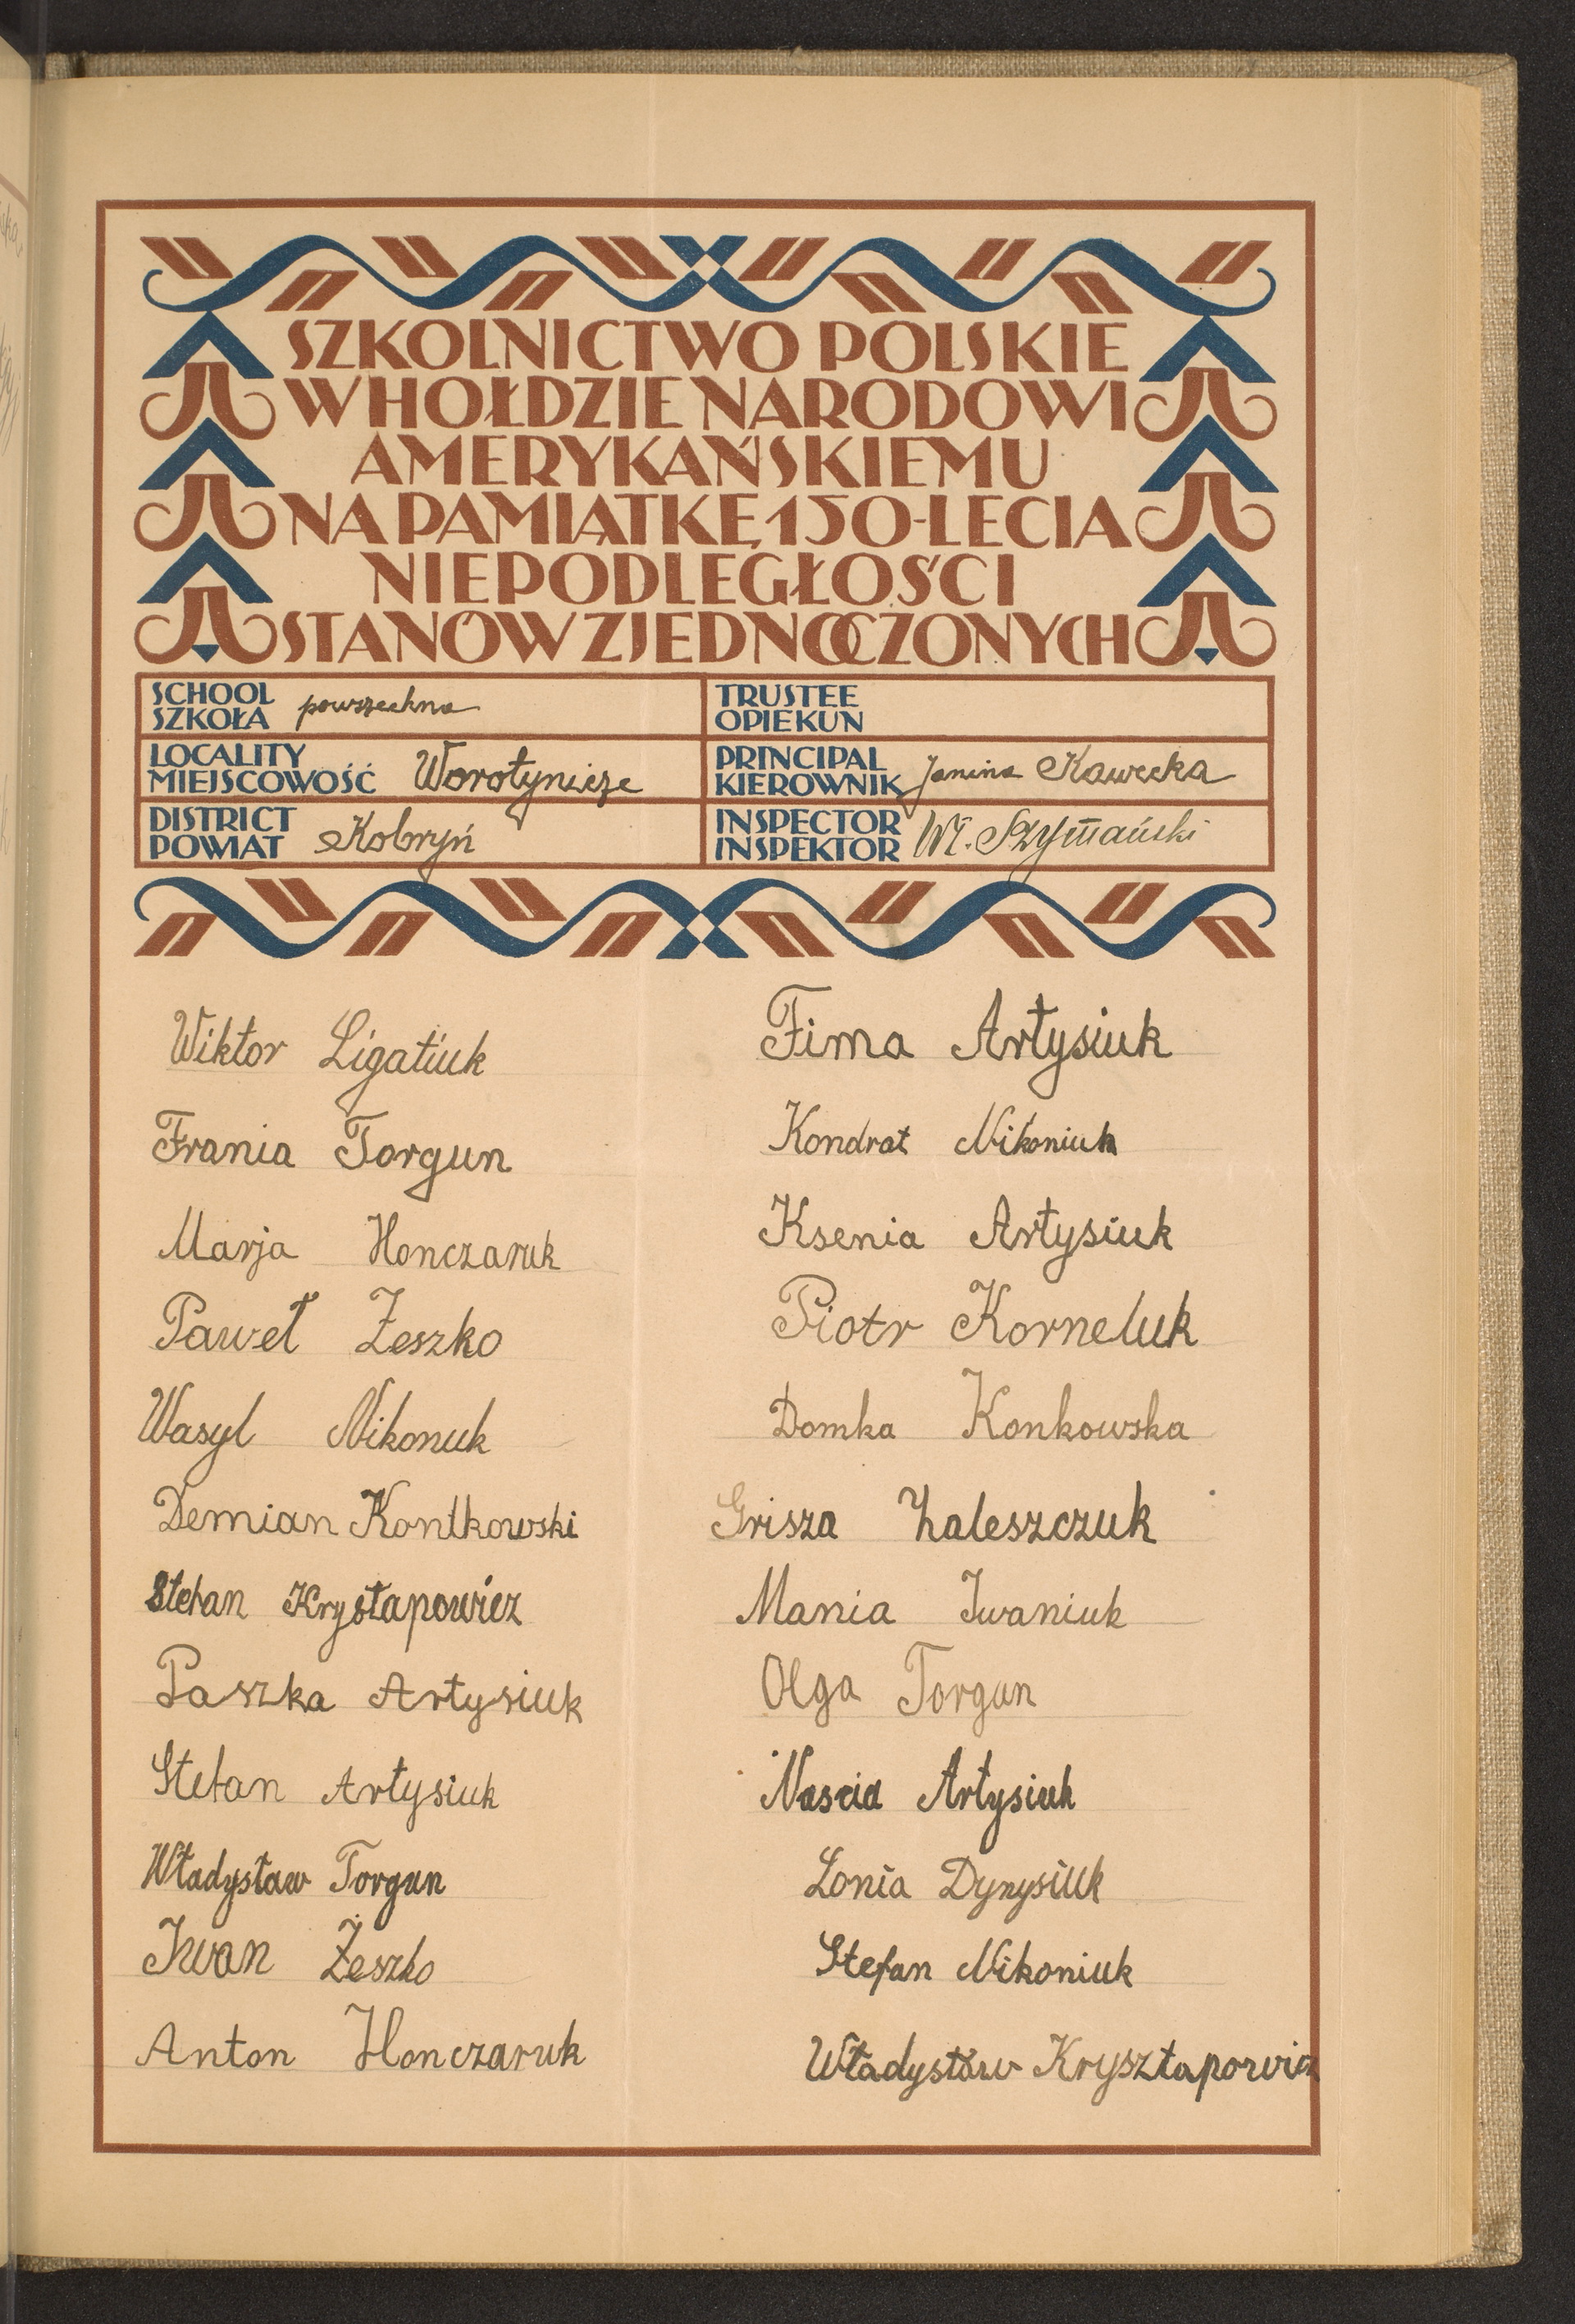 SZKOLNICTWO POLSKIE
W HOŁDZIE NARODOWI
AMERYKAŃSKIEMU
NA PAMIĄTKĘ 150-LECIA
NIEPODLEGŁOŚCI
STANÓW ZJEDNOCZONYCH
SCHOOL
SZKOŁA powszechna
TRUSTEE
OPIEKUN
LOCALITY
MIEJSCOWOŚĆ Worotynicze
PRINCIPAL
KIEROWNIK Janina Kawecka
DISTRICT
POWIAT Kobryń
INSPECTOR
INSPEKTOR Wł. Szymański
Wiktor Ligatiuk
Frania Torgun
Marja Honczaruk
Paweł Żeszko
Wasyl Nikonuk
Demian Kontkowski
Stefan Krystapowicz
Paszka Artysiuk
Stefan Artysiuk
Władysław Torgun
Iwan Żeszko
Anton Honczaruk
Fima Artysiuk
Kondrat Nikoniuk
Ksenia Artysiuk
Piotr Korneluk
Domka Konkowska
Grisza Zaleszczuk
Mania Iwaniuk
Olga Torgun
Nascia Artysiuk
Lonia Dynysiuk
Stefan Nikoniuk
Władysław Krysztapowicz